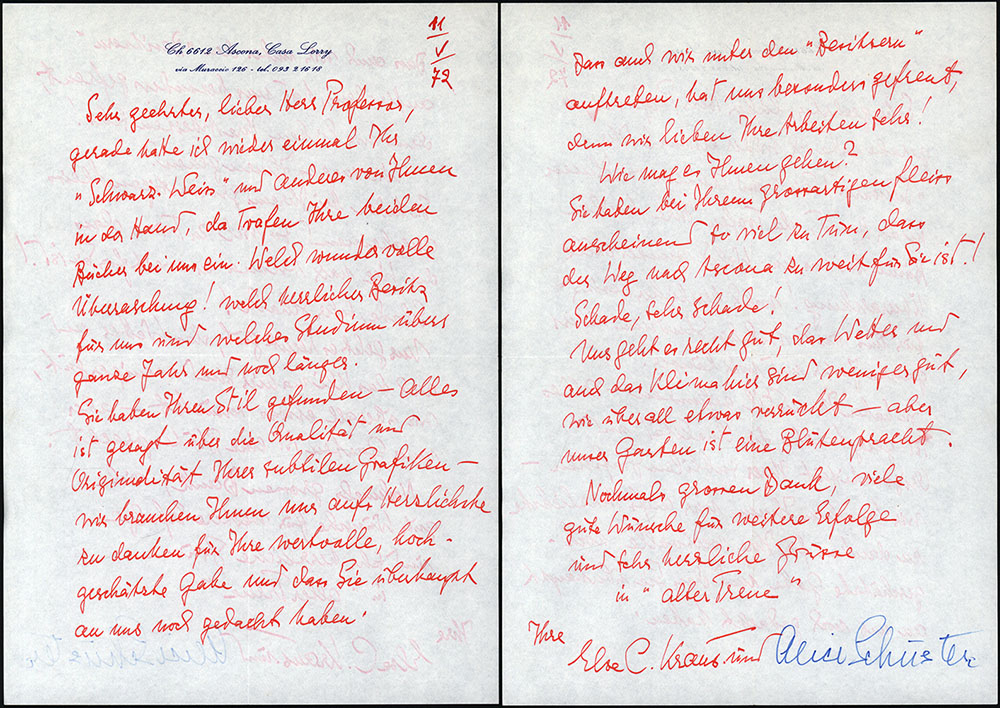 Ch 6612 Ascona, Casa Lorry
via Muraccio 126 - tel. 093 2 16 18
11
V
72
Sehr geehrter, lieber Herr Professor,
gerade hatte ich wieder einmal Ihr
"Schwarz-Weiss" und anderes von Ihnen
in der Hand, da trafen Ihre beiden
Bücher bei uns ein. Welch wundervolle
Überraschung! welch herrlicher Besitz
für uns und welches Studium übers
ganze Jahr und noch länger.
Sie haben Ihren Stil gefunden — Alles
ist gesagt über die Qualität und
Originalität Ihrer subtilen Grafiken —
wir brauchen Ihnen nur aufs Herzlichste
zu danken für Ihre wertvolle, hoch-
geschätzte Gabe und dass Sie überhaupt
an uns noch gedacht haben!
Dass auch wir unter den "Besitzern"
auftreten, hat uns besonders gefreut,
denn wir lieben Ihre Arbeiten sehr!
Wie mag es Ihnen gehen?
Sie haben bei Ihrem grossartigen Fleiss
anscheinend so viel zu Tun, dass
der Weg nach Ascona zu weit für Sie ist!
Schade, sehr schade!
Uns geht es recht gut, das Wetter und
auch das Klima hier sind weniger gut,
wie überall etwas verrückt — aber
unser Garten ist eine Blütenpracht.
Nochmals grossen Dank, viele
gute Wünsche für weitere Erfolge
und sehr herzliche Grüsse
in "alter Treue"
Ihre
Elsa C. Kraus und Alice Schuster